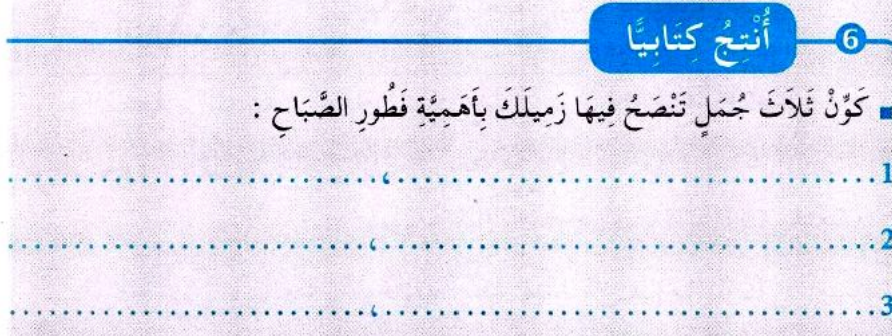 6 أُنْتِجُ كِتَابِيًّا
كَوِّنْ ثَلَاثَ جُمَلٍ تَنْصَحُ فِيهَا زَمِيلَكَ بِأَهَمِيَّةِ فَطُورِ الصَّبَاحِ :
1 ........................................ ، ........................................
2 ........................................ ، ........................................
3 ........................................ ، ........................................